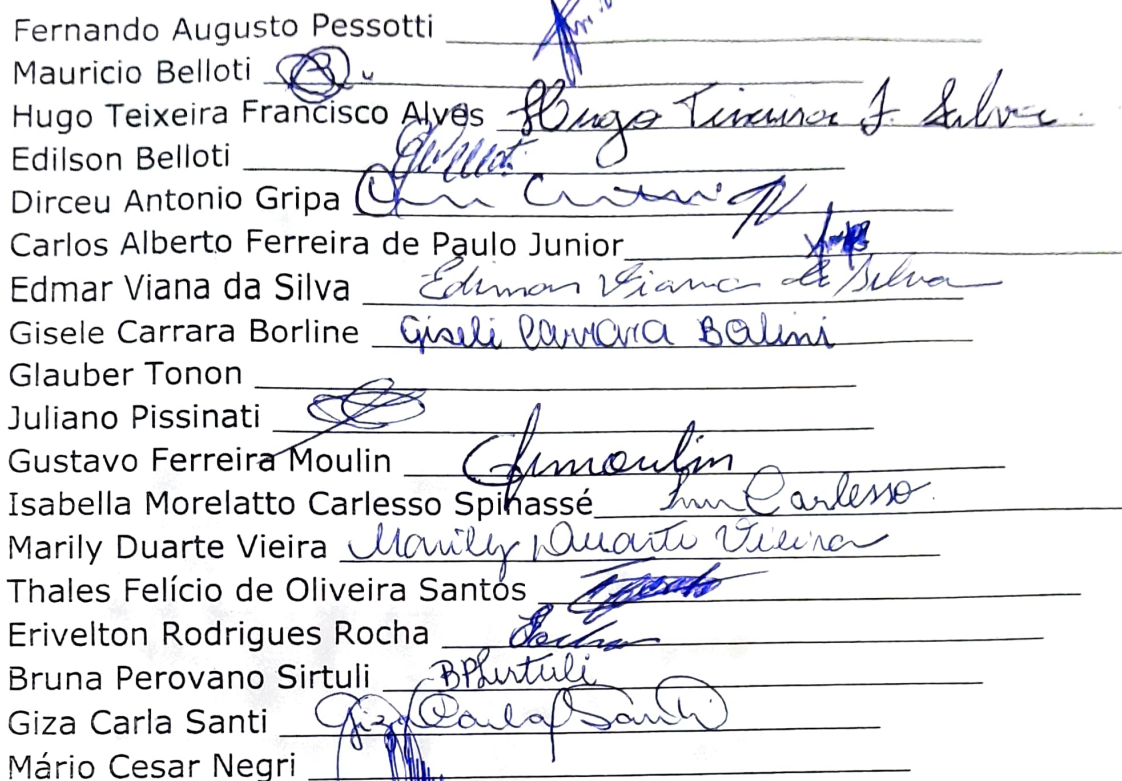 Fernando Augusto Pessotti
Mauricio Belloti
Hugo Teixeira Francisco Alves Hugo Teixeira F. Salves
Edilson Belloti
Dirceu Antonio Gripa
Carlos Alberto Ferreira de Paulo Junior
Edmar Viana da Silva Edimar Viana da Silva
Gisele Carrara Borline Giseli Carrara Bolini
Glauber Tonon
Juliano Pissinati
Gustavo Ferreira Moulin Gfmoulin
Isabella Morelatto Carlesso Spinassé Carlesso
Marily Duarte Vieira Marily Duarte Vieira
Thales Felício de Oliveira Santos
Erivelton Rodrigues Rocha Rocha
Bruna Perovano Sirtuli BPSirtuli
Giza Carla Santi Giza Carla Santi
Mário Cesar Negri